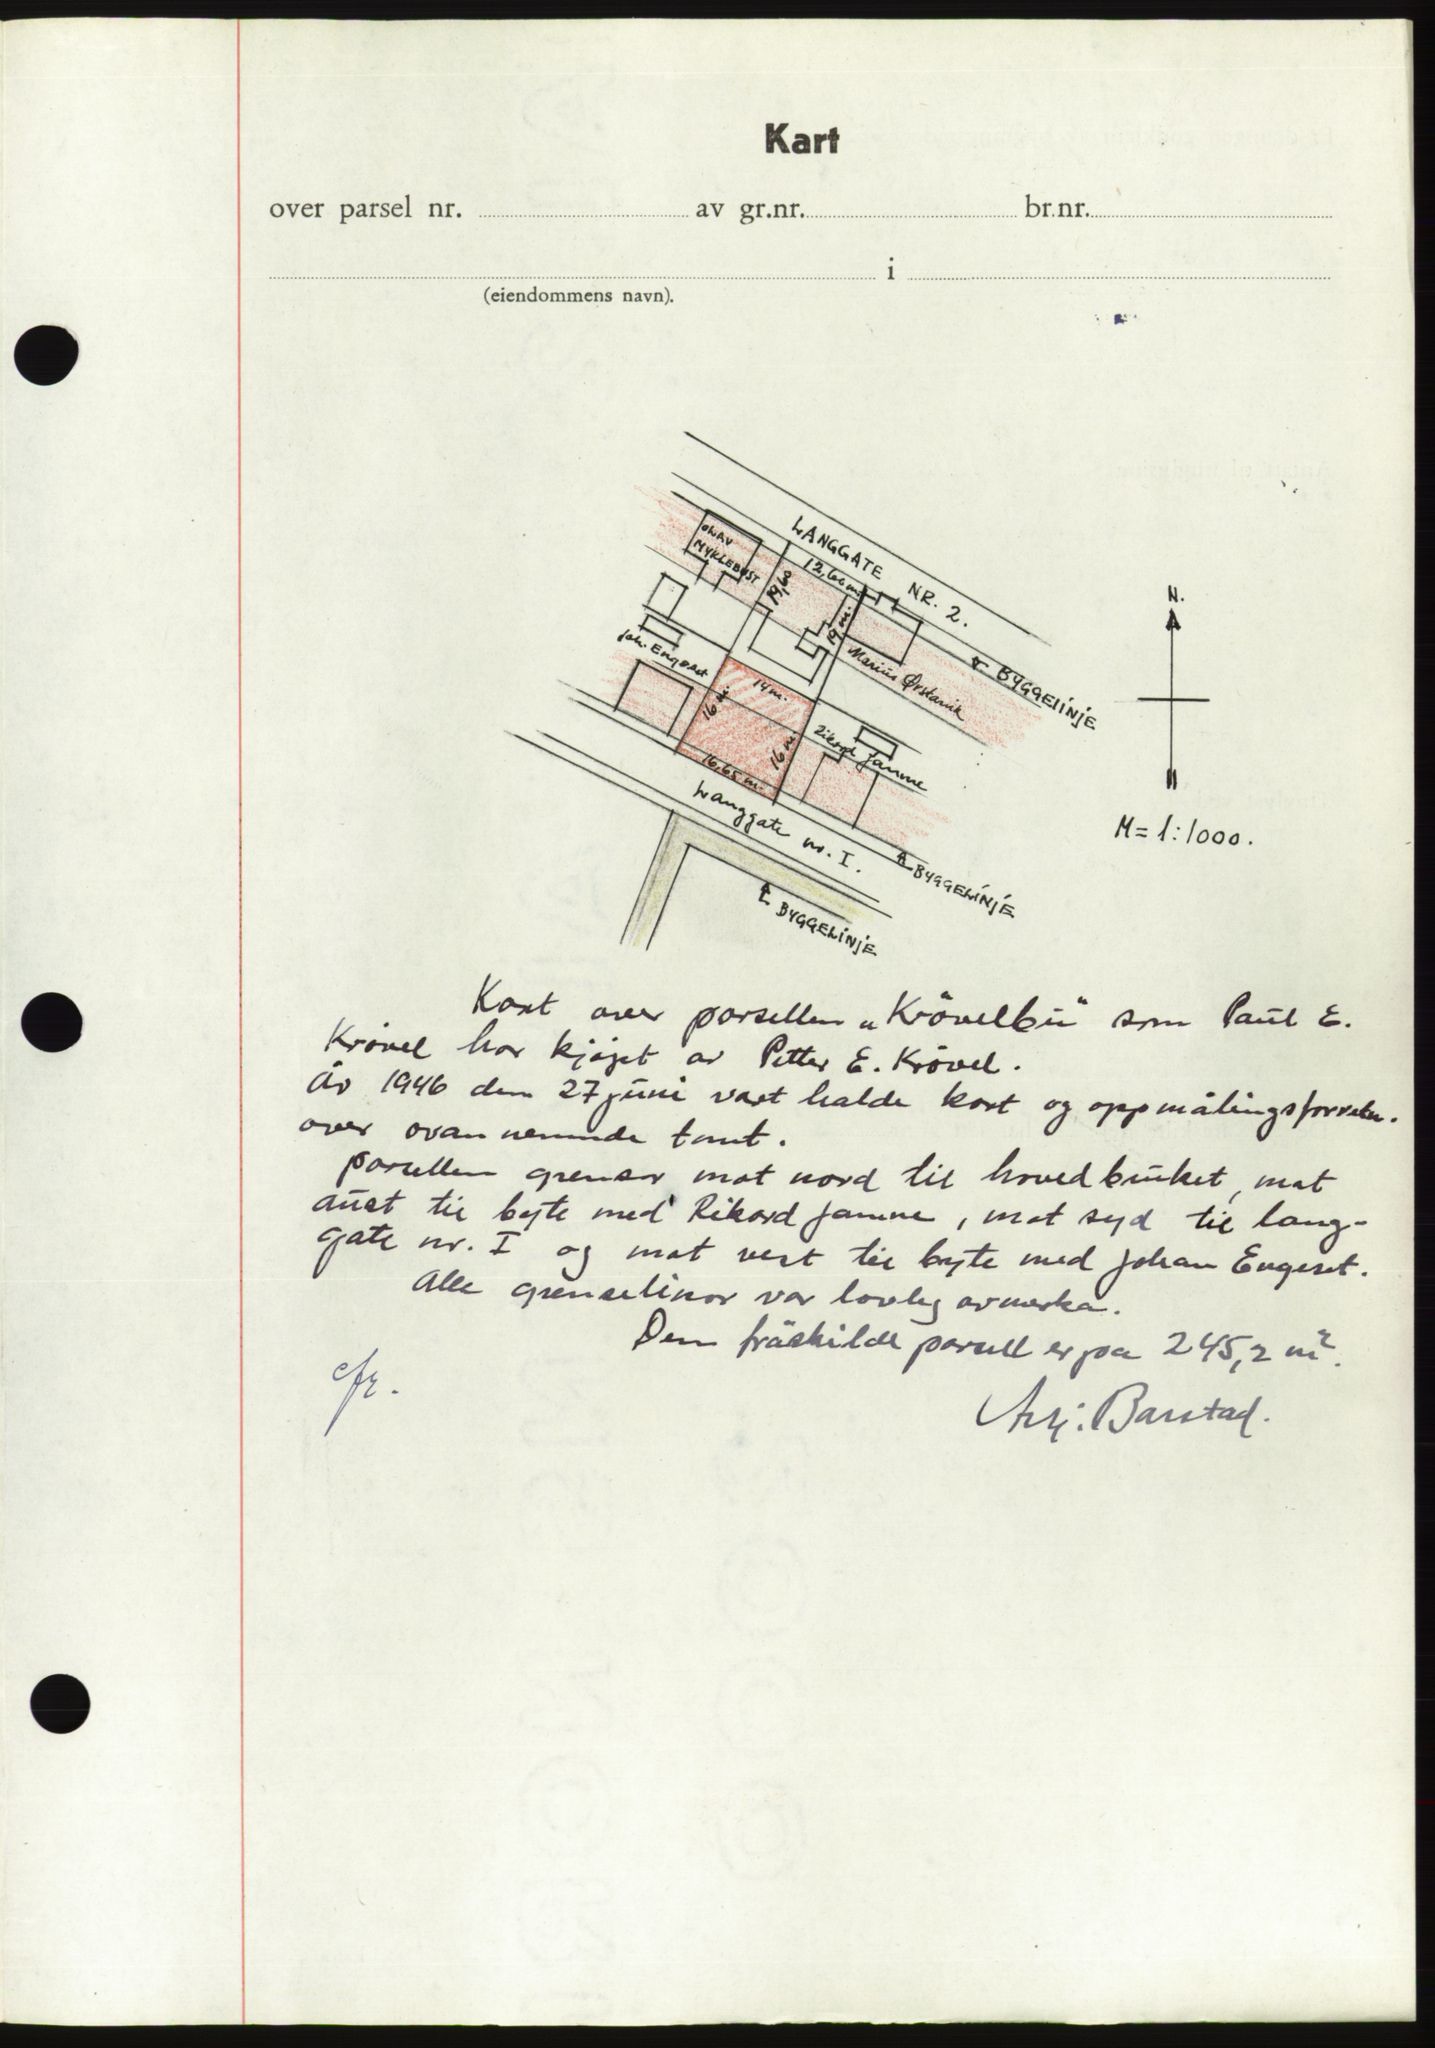 Kart
over parsel nr. av gr.nr. br.nr.
i
(eiendommens navn).
LANGGATE NR. 2.
OLAV
MYKLEBUST
19,60
12,60 m
19 m.
Marius Ørstavik
BYGGELINJE
N.
Joh. Engeset
14 m.
16 m.
16 m.
16,65 m.
Rikard Jamne
Langgate nr. I.
M = 1:1000.
BYGGELINJE
BYGGELINJE
Kart over parsellen „Krövelbu" som Paul E.
Krøvel har kjøpt av Petter E. Krövel.
År 1946 den 27 juni vart halde kart og oppmålingsforretn.
over ovannemnde tomt.
Parsellen grensar mot nord til hovedbruket, mot
aust til byte med Rikard Jamne, mot syd til lang-
gate nr. I og mot vest til byte med Johan Engeset.
Alle grenselinor var lovleg avmerka.
Den fråskilde parsell er på 245,2 m².
Barstad.